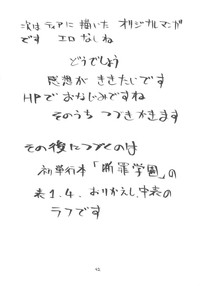 次は ティアに 描いた オリジナルマンガ
です エロ なしね
どうでしょう
感想が ききたいです
HPで おなじみですね
そのうち つづきかきます
その後につづくのは
初単行本「断罪学園」の
表1.4. おりかえし、中表の
ラフです